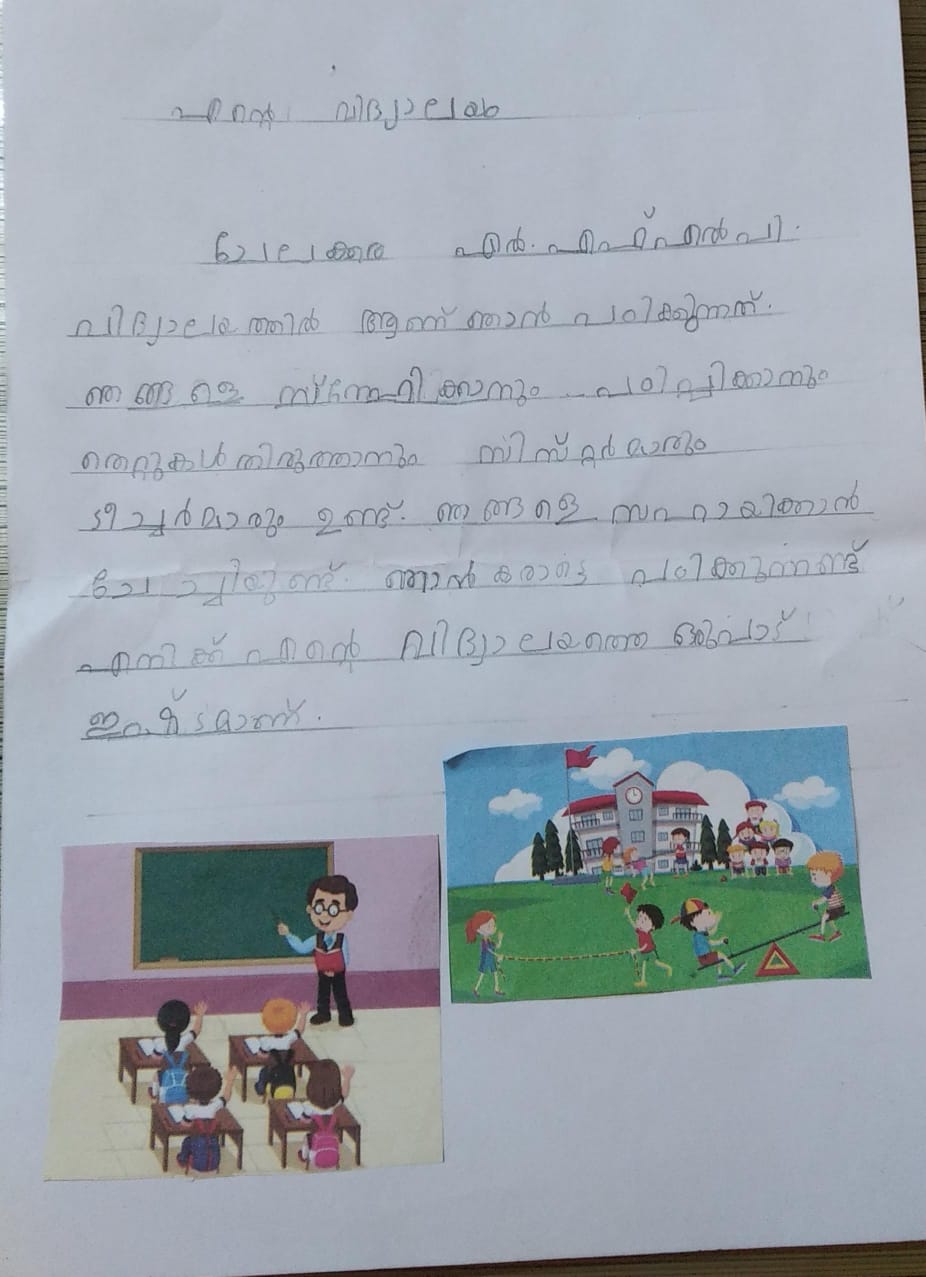 എന്റെ വിദ്യാലയം
ചേലക്കര എൽ. എഫ് എൽ പി.
വിദ്യാലയത്തിൽ ആണ് ഞാൻ പഠിക്കുന്നത്.
ഞങ്ങളെ സ്നേഹിക്കാനും പഠിപ്പിക്കാനും
തെറ്റുകൾ തിരുത്താനും സിസ്റ്റർമാരും
ടീച്ചർമാരും ഉണ്ട്. ഞങ്ങളെ സഹായിക്കാൻ
ചേച്ചിയുണ്ട്. ഞാൻ കരാട്ടെ പഠിക്കുന്നുണ്ട്
എനിക്ക് എന്റെ വിദ്യാലയത്തെ ഒരുപാട്
ഇഷ്ടമാണ്.